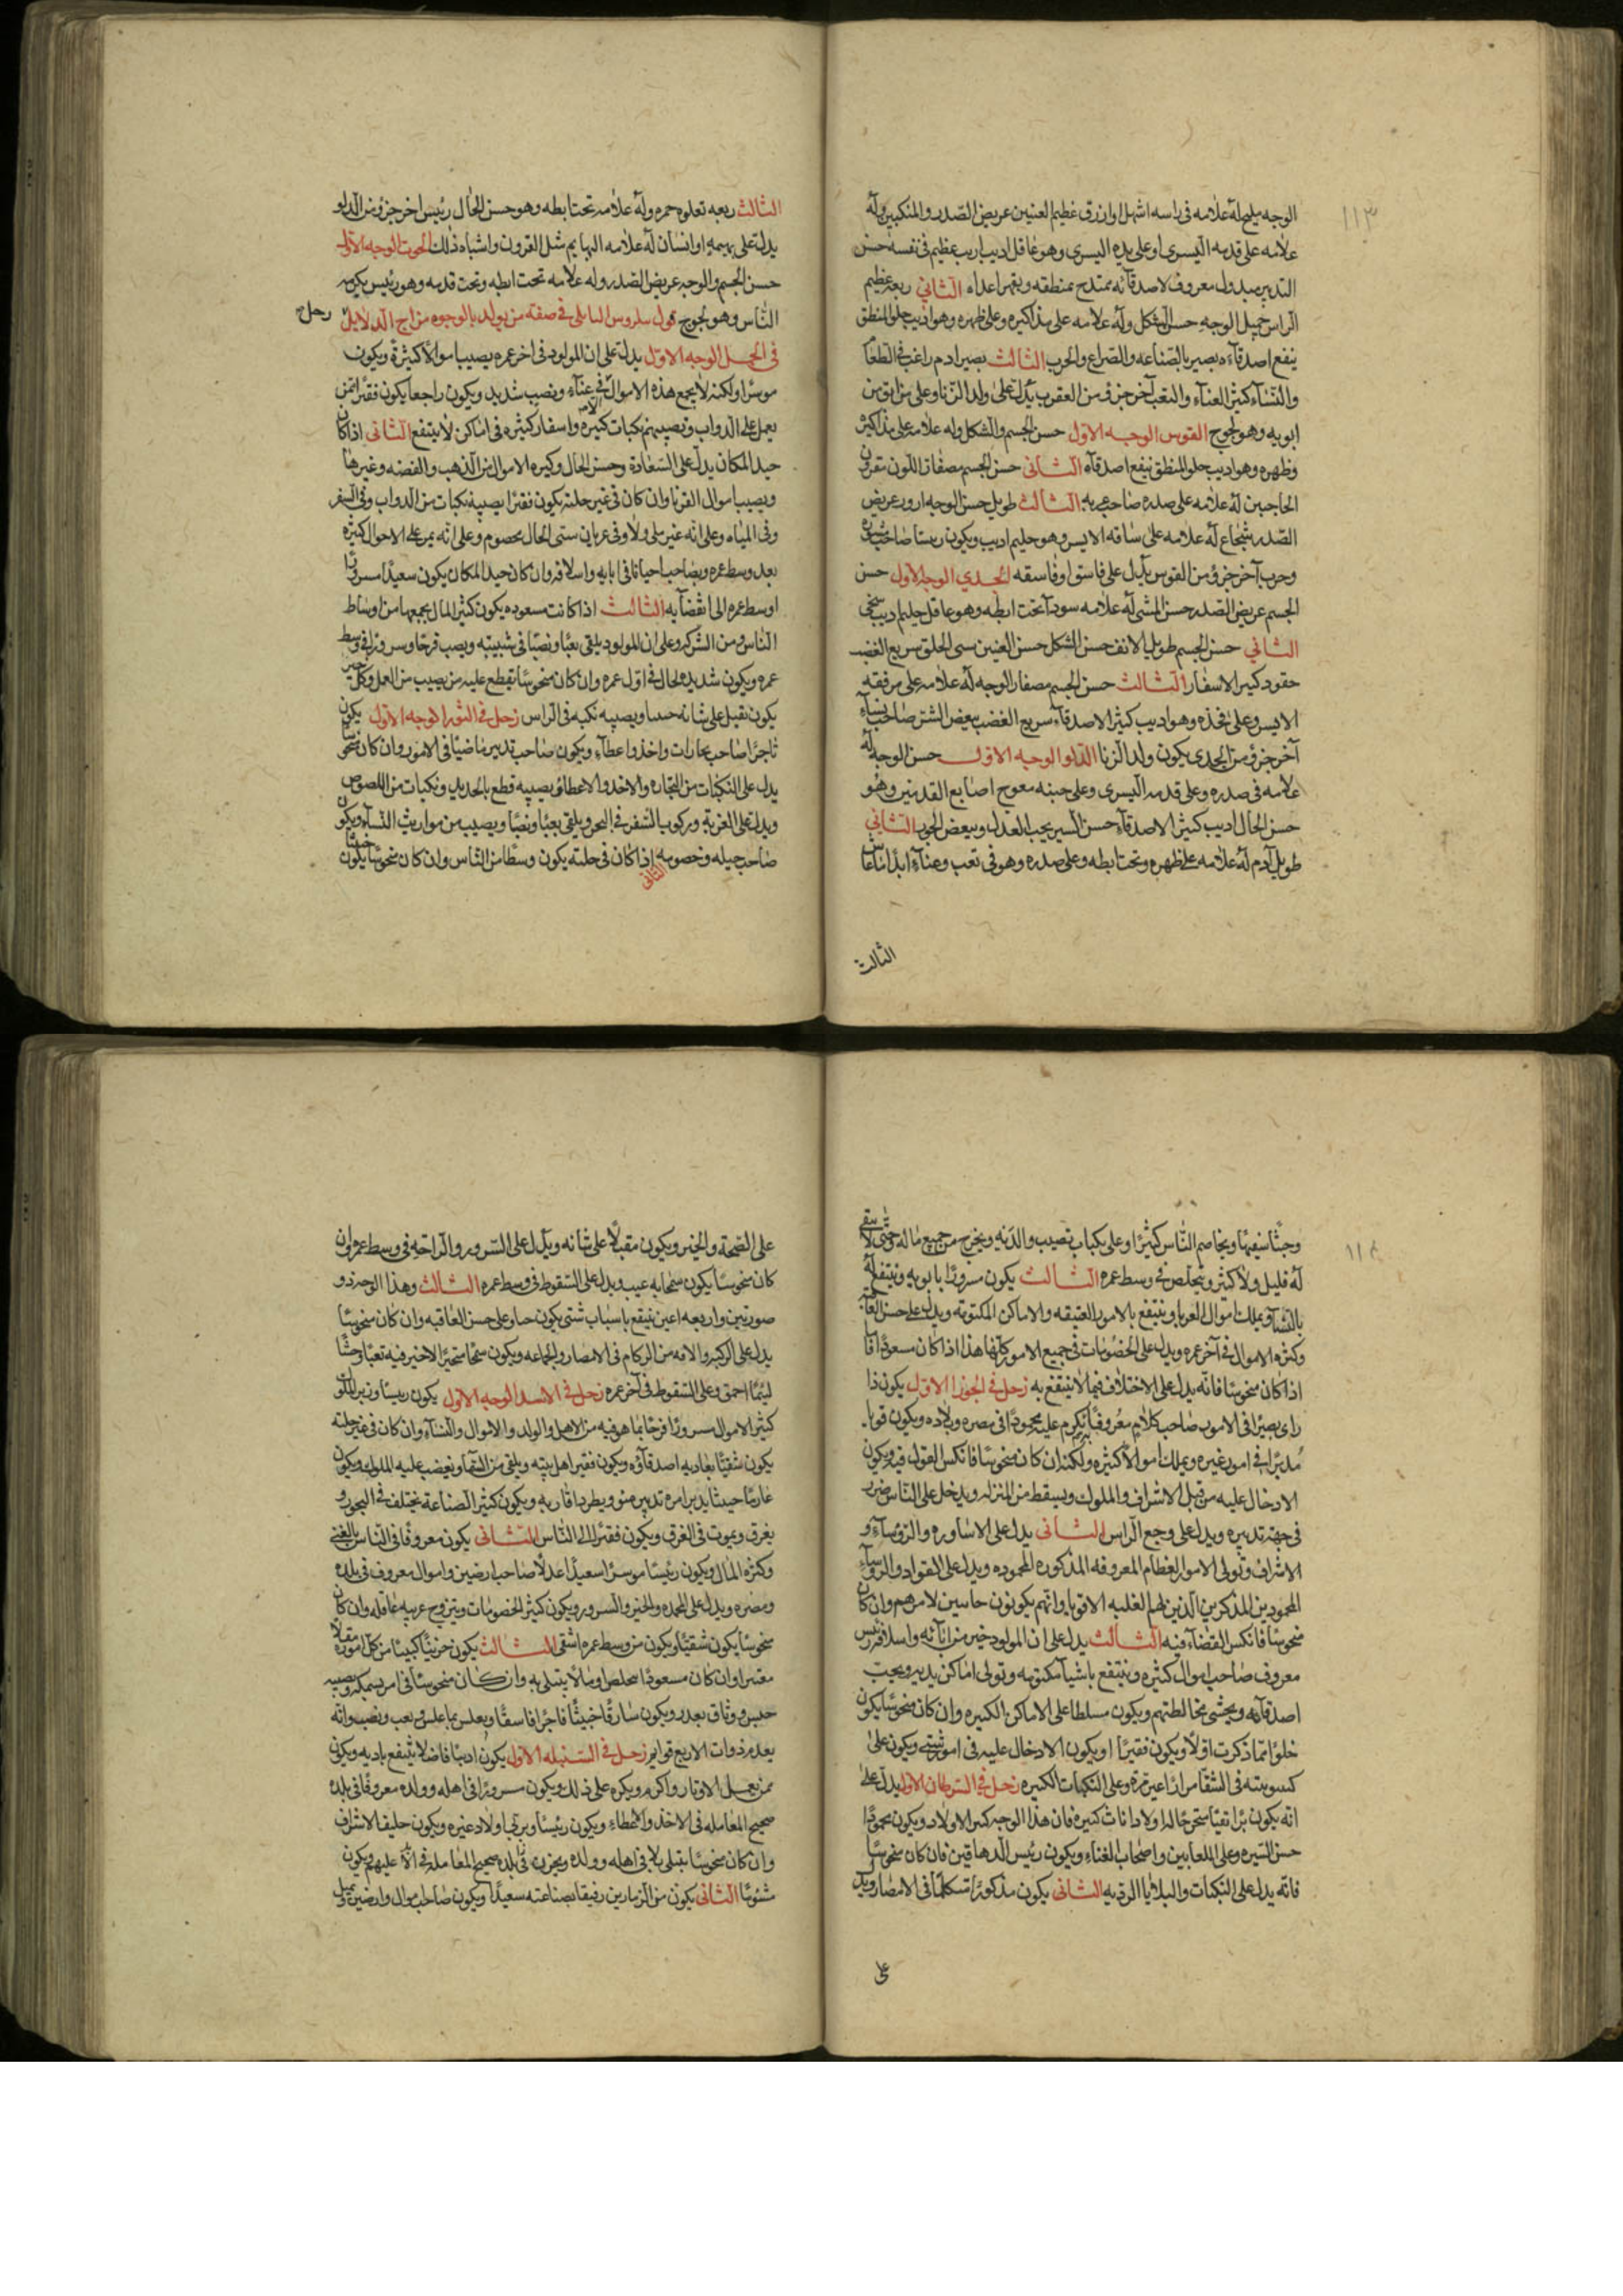 ١١٣
الوجه مليح له علامه فى راسه اشهل او ازرق عظيم العنين عريض الصدر والمنكبين وله
علامه على قدمه اليسرى او على يده اليسرى وهو عاقل اديب اريب عظيم فى نفسه حسن
التدبير مبدول معروف لاصدقائه ممتدح بمنطقه ويقهر اعداه الثانى ربعه عظيم
الراس جميل الوجه حسن الشكل وله علامه على مذاكيره وعلى ظهره وهو اديب حلو المنطق
ينفع اصدقاءه بصير بالصناعه والصراع والحرب الثالث بصير ادم راغب فى الطعا
والنساء كثير العناء والتعب آخر جزؤ من العقرب يدل على ولد الزنا وعلى من
ابويه وهو لجوج القوس الوجه الاول حسن الجسم والشكل وله علامه على مذاكيره
وظهره وهو اديب حلو المنطق ينفع اصدقاه الثانى حسن الجسم مصفار اللون مقرون
الحاجبين له علامه على صدره صاحب عربيه الثالث طويل حسن الوجه ازور عريض
الصدر شجاع له علامه على ساقه الايسر وهو حليم اديب ويكون رييسا صاحب
وحرب آخر جزؤ من القوس دليل على فاسق او فاسقه الجدي الوجه الاول حسن
الجسم عريض الصدر حسن المشى له علامه سودآ تحت ابطه وهو عاقل حليم اديب سخى
الثانى حسن الجسم طويل الانف حسن الشكل حسن العنين سى الخلق سريع الغضب
حقود كبير الاسفار الثالث حسن الجسم مصفار الوجه له علامه على مرفقه
الايسر وعلى فخذه وهو اديب كثير الاصدقاء سريع الغضب يبغض الشر صاحب نساء
آخر جزؤ من الجدى يكون ولد الزنا الدلو الوجه الاول حسن الوجه له
علامه فى صدره وعلى قدمه اليسرى وعلى جبنه معوج اصابع القدمين وهو
حسن الحال اديب كثير الاصدقاء حسن السير يحب العدل ويبغض الجور الثانى
طويل آدم له علامه على ظهره وتحت ابطه وعلى صدره وهو فى تعب وعناء ابدا ما عاش
الثالث
الثالث ربعه تعلوه حمره وله علامه تحت ابطه وهو حسن الحال رئيس اخر جزؤ من الدلو
يدل على بهيمه او انسان له علامه البهايم مثل القرون واشباه ذلك الحوت الوجه الاول
حسن الجسم والوجه عريض الصدر وله علامه تحت ابطه وتحت قدمه وهو رئيس يكرمه
الناس وهو لجوج قول سلروس البابلى فى صفة من يولد بالوجوه من اج الدلايل زحل
فى الحمل الوجه الاول يدل على ان المولود فى اخر عمره يصيب اموالا كثيرة ويكون
موسرا ولكنه لا يجمع هذه الاموال الا فى عناء ونصب شديد ويكون راجعا يكون فقيرا ممن
يعمل على الدواب وتصيبهم نكبات كثيره واسفار كثيره فى اماكن لا ينتفع الثانى اذا كان
جيد المكان يدل على السعادة وحسن الحال وكثره الاموال من الذهب والفضه وغيرها
ويصيب اموال الغربا وان كان فى غير حليته يكون فقيرا يصيبه نكبات من الدواب وفى السفر
وفى المياه وعلى انه غير ملى ولا وفى عريان سئ الحال مخصوم وعلى انه يمر على الاحوال كثيره
بعد وسط عمره ويصاحب احيانا فى ابايه واسلافه وان كان جيد المكان يكون سعيدا مسرورا
اوسط عمره الى انقضآيه الثالث اذا كانت مسعوده يكون كثير المال يجمعها من اوساط
الناس ومن الشركه وعلى ان المولود يلقى تعبا ونصبا فى شبيبته ويصب فرحا وسرورا فى وسط
عمره ويكون شديد الحال فى اول عمره وان كان منحوسا يقطع عليه من يصيب من العمل وكل خير
يكون ثقيل على شانه ويصيبه نكبه فى الراس زحل فى الثور الوجه الاول يكون
تاجرا صاحب تجارات واخذ واعطاء ويكون صاحب تدبير ماضيا فى الامور وان كان منحوسا
يدل على النكبات من التجاره والاخذ والاعطاؤ يصيبه قطع بالحديد ونكبات من اللصوص
ويدل على الغربة وركوب السفر فى البحر ويلقى تعبا ونصبا ويصيب من مواريث النساء ويكون
صاحب حيله وخصومه الثانى اذا كان فى حليته يكون وسطا من الناس وان كان منحوسا يكون خبيثا
١١٤
وجثا سفيها ويخاصم الناس كثيرا وعلى نكبات تصيب والديه ويخرج من جميع ماله حتى لا يبقى
له قليل ولا كثير ويتخلص فى وسط عمره الثالث يكون مسرورا بابويه وينتفع له
بالنساء ويملك اموال الغربا وينتفع بالامور العتيقه والاماكن المكتومه ويدل على حسن العاقبه
وكثره الاموال فى آخر عمره ويدل على الخصومات فى جميع الامور كلها هذا اذا كان مسعودا فاما
اذا كان منحوسا فانه يدل على الاختلاف فيما لا ينتفع به زحل فى الجوزا الاول يكون ذا
راى بصيرا فى الامور صاحب كلام معروف يكرم عليه محمودا فى مصره وبلاده ويكون قويا
مدبرا فى امور غيره ويملك اموالا كثيره ولكنه ان كان منحوسا فانكس القول فيه ويكون
الادخال عليه من قبل الاشراف والملوك ويسقط من المنزله ويدخل على الناس ضرر
فى جهة تدبيره ويدل على وجع الراس الثانى يدل على الاساوره والرؤساء و
الاشراف وتولى الامور العظام المعروفه المذكوره المحموده ويدل على القواد والروساء
المحمودين المذكورين الذين لهم الغلبه الاقويا وانهم يكونون حابسين لامرهم وان كان
منحوسا فانكس القضاء فيه الثالث يدل على ان المولود خير من ابائه واسلافه رئيس
معروف صاحب اموال كثيره وينتفع باشيا مكتومه وتولى اماكن يديه ويحب
اصدقاءه ويخشى مخالطتهم ويكون مسلطا على الاماكن الكبيره وان كان منحوسا يكون
خلوا مما ذكرت اولا ويكون فقيرا او يكون الادخال عليه فى امور شتى ويكون على
كسوبيته فى الشقا مرارا غير مره وعلى النكبات الكثيره زحل فى السرطان الاول يدل على
انه يكون برا تقيا اولادا اناث كثيره فان هذا الوجه كثير الاولاد ويكون محمودا
حسن السيره وعلى الملعابين واصحاب الغناء ويكون رئيس الدهاقين فان كان منحوسا
فانه يدل على النكبات والبلايا الرديه الثانى يكون مذكورا متكلما فى الامصار ويدل
على
على الصحة والخير ويكون مقبلا على شانه ويدل على السرور والراحه فى وسط عمره وان
كان منحوسا يكون به عيب ويدل على السقوط فى وسط عمره الثالث وهذا الوجه ذو
صورتين واربعه اعين ينتفع باسباب شتى يكون وعلى حسن العاقبه وان كان منحوسا
يدل على الركبه والافه من الزكام فى الامصار والجماعه ويكون الاخير فيه تعبا وجثا
لئيما احمق وعلى السقوط فى آخر عمره زحل فى الاسد الوجه الاول يكون رييسا وزير الملوك
كثير الاموال مسرورا فرحا بما هو فيه من الاهل والولد والاموال والنساء وان كان فى غير حليته
يكون شقيا يعاديه اصدقاؤه ويكون فقير اهل بيته ويلقى من الشقا ويغضب عليه الملوك ويكون
غارما خبيثا يدبر امره تدبير سوء ويطرد اقاربه ويكون كثير الصناعة يختلف فى البحور و
يغرق ويموت فى الغرق ويكون فقيرا الى الناس الثانى يكون معروفا فى الناس بالغنى
وكثره المال ويكون رئيسا موسرا سعيدا عدلا صاحب ارضين واموال معروف فى بلده
ومصره ويدل على المحمده والخير والسرور ويكون كثير الخصومات ويتزوج غريبه عاقله وان كان
منحوسا يكون شقيا ويكون من وسط عمره اشقى الثالث يكون حزينا كئيبا من كل اموره مقلا
مقترا وان كان مسعودا يتخلص اوسالا يبتلى به وان كان منحوسا فى امر يمسك ويصيبه
حبس ووثاق بغدر ويكون سارقا خبيثا فاجرا فاسقا وتعب ونصب وانه
يعدم ذوات الاربع قوايم زحل فى السنبله الاول يكون اديبا فاضلا ينتفع بادبه ويكون
ممن يعمل الاوتار واكرم ويكره على ذلك ويكون مسرورا فى اهله وولده معروفا فى بلده
صحيح المعامله فى الاخذ والاعطاء ويكون رئيسا ويربى اولاد غيره ويكون حليفا لاشراف
وان كان منحوسا يبتلى بلا فى اهله وولده ويحزن فى بلده صحيح المعامله عليهم ويكون
مشئوما الثانى يكون من الزمارين رفيقا بصناعته سعيدا ويكون صاحب اموال وارضين